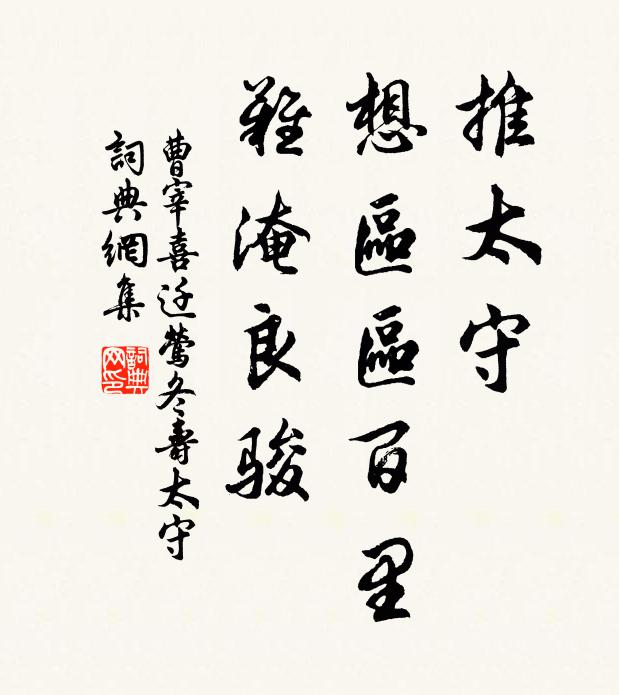 推太守
想區區百里
難淹良驥
曹宰喜迁鶯冬壽太守
詞典網集
詞典网印